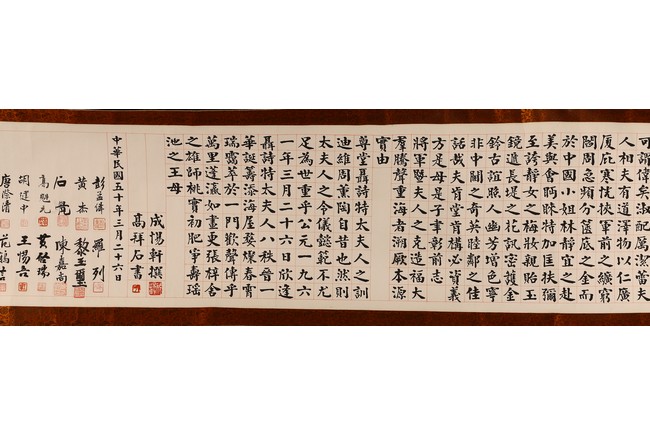 可謂偉矣淑配厲潔蕾夫
人相夫有道澤物以仁廣
廈庇寒恍挾軍前之纊窮
閻周急頻分篋底之金而
於中國小姐林靜宜之赴
美與會眄睞特加匡扶彌
至誇靜女之梅妝親貽玉
鏡遞長堤之花訊密護金
鈴古誼照人幽芳增色寧
非中閫之奇英睦鄰之佳
話哉夫肯堂肯構必資義
方是母是子聿彰前志
將軍暨夫人之克造福大
羣騰聲重海者溯厥本源
實由
尊堂聶詩特太夫人之訓
迪維周熏陶自昔也然則
太夫人之令儀懿範不尤
足為世重乎公元一九六
一年三月二十六日欣逢
聶詩特太夫人八秩晉一
華誕籌添海屋婺燦春霄
瑞靄萃於一門歡聲傳乎
萬里蓬瀛如畫更張梓舍
之雄師桃實初肥寧壽瑤
池之王母
成惕軒撰
高祥石書
中華民國五十年三月二十六日
彭孟緝 羅列
黃杰 黎玉璽
石覺 陳嘉尚
高魁元 黃啓瑞
胡健中 王惕吾
唐際清